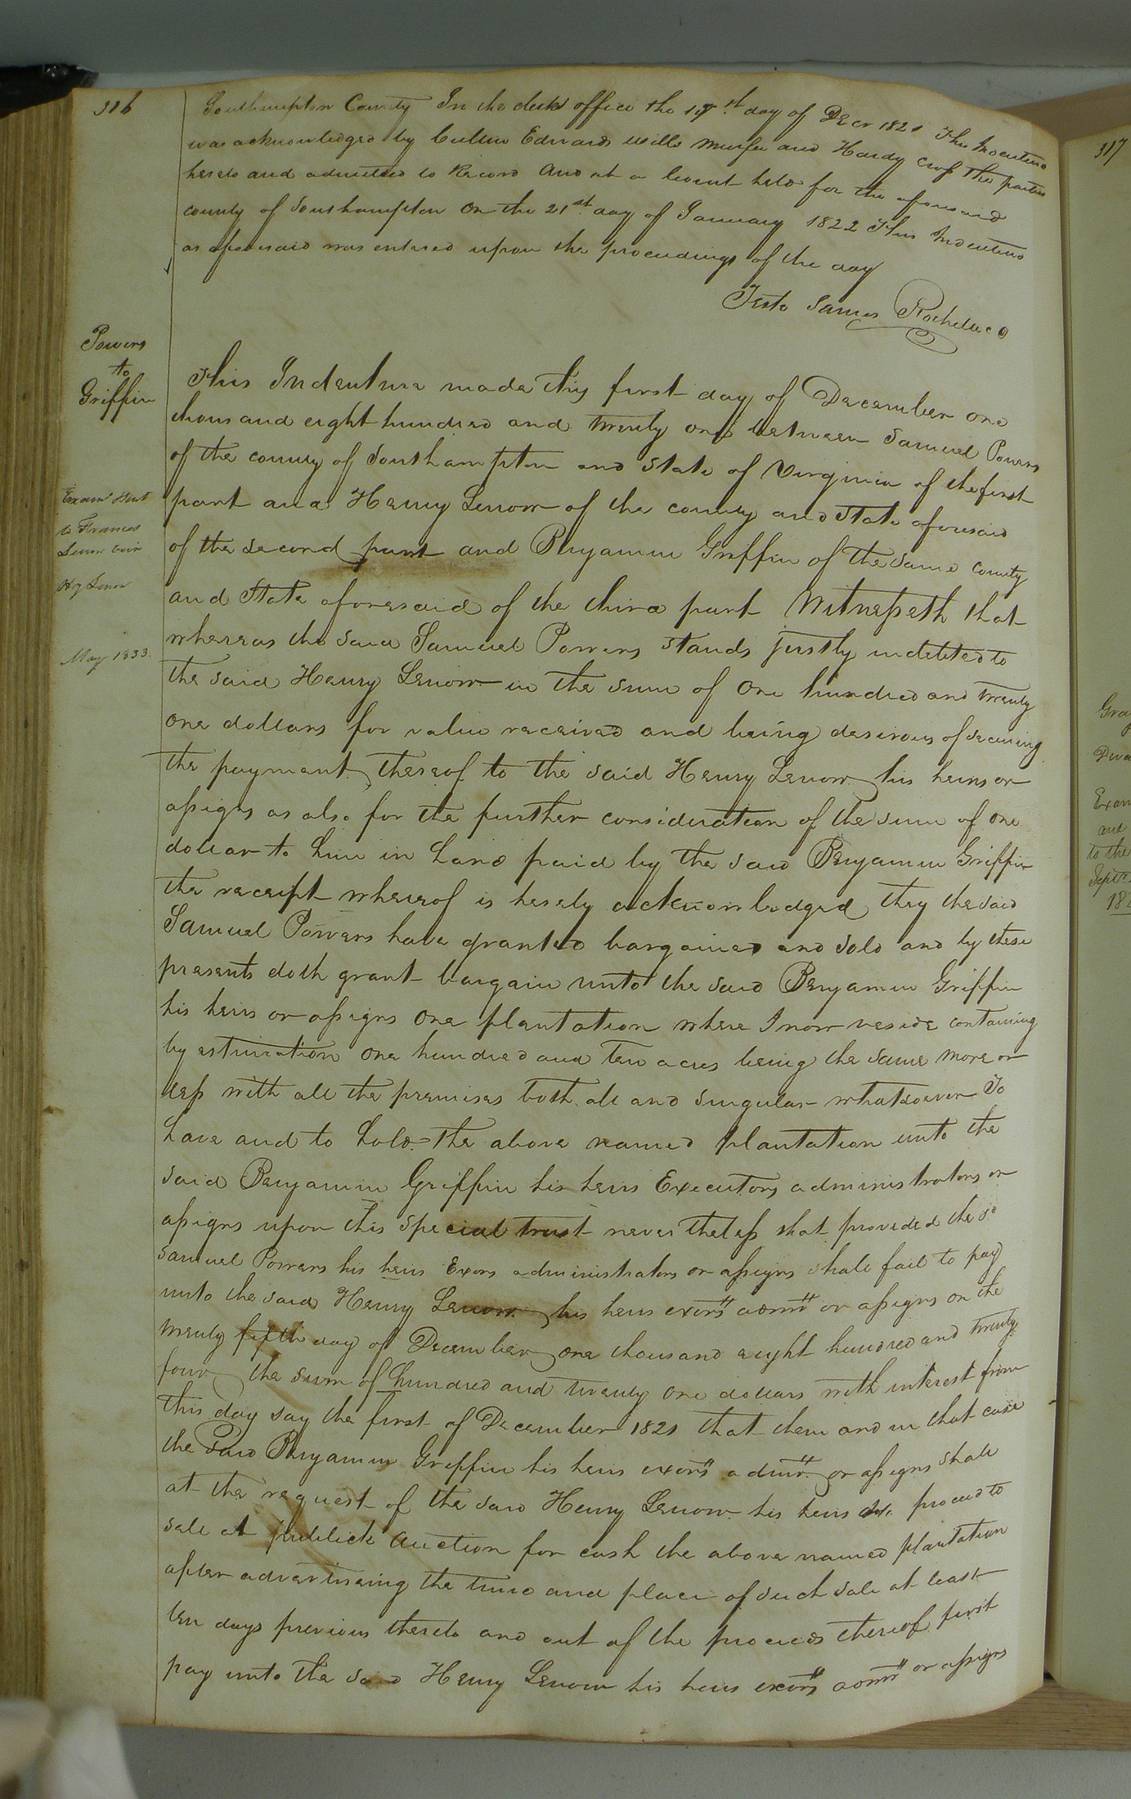 316
Southampton County In the clerks office the 17th day of Decr 1821 This Indenture
was acknowledged by Edwards Wills and Hardy the parties
hereto and admitted to Record And at a Court held for the aforesaid
county of Southampton on the 21st day of January 1822 This Indenture
as aforesaid was entered upon the proceedings of the day
Teste James Rochelle C
Powers
to
Griffin
Examd &
to Frances
Lenow
Hy Lenow
May 1833
This Indenture made this first day of December one
thousand eight hundred and twenty one between Samuel Powers
of the county of Southampton and State of Virginia of the first
part and Henry Lenow of the county and State aforesaid
of the second part and Benjamin Griffin of the same county
and State aforesaid of the third part Witnesseth that
whereas the said Samuel Powers stands justly indebted to
the said Henry Lenow in the sum of one hundred and twenty
one dollars for value received and being desirous of securing
the payment thereof to the said Henry Lenow his heirs or
assigns as also for the further consideration of the sum of one
dollar to him in hand paid by the said Benjamin Griffin
the receipt whereof is hereby acknowledged they the said
Samuel Powers have granted bargained and sold and by these
presents doth grant bargain unto the said Benjamin Griffin
his heirs or assigns one plantation where I now reside containing
by estimation one hundred and ten acres being the same more or
less with all the premises both all and singular whatsoever To
have and to hold the above named plantation unto the
said Benjamin Griffin his heirs Executors administrators or
assigns upon this special trust nevertheless that provided the sd
Samuel Powers his heirs Exors administrators or assigns shall fail to pay
unto the said Henry Lenow his heirs exors admrs or assigns on the
twenty fifth day of December one thousand eight hundred and twenty
four the sum of hundred and twenty one dollars with interest from
this day say the first of December 1821 that then and in that case
the said Benjamin Griffin his heirs exors admr or assigns shall
at the request of the said Henry Lenow his heirs &c proceed to
sale at publick auction for cash the above named plantation
after advertiseing the time and place of such sale at least
ten days previous thereto and out of the proceeds thereof first
pay unto the said Henry Lenow his heirs exors admrs or assigns
317